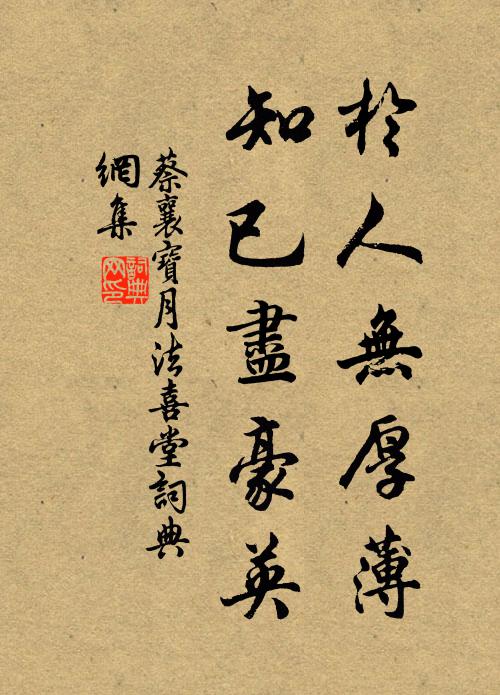 於人無厚薄
知已盡豪英
蔡襄寶月法喜堂詞典
網集
詞典網印